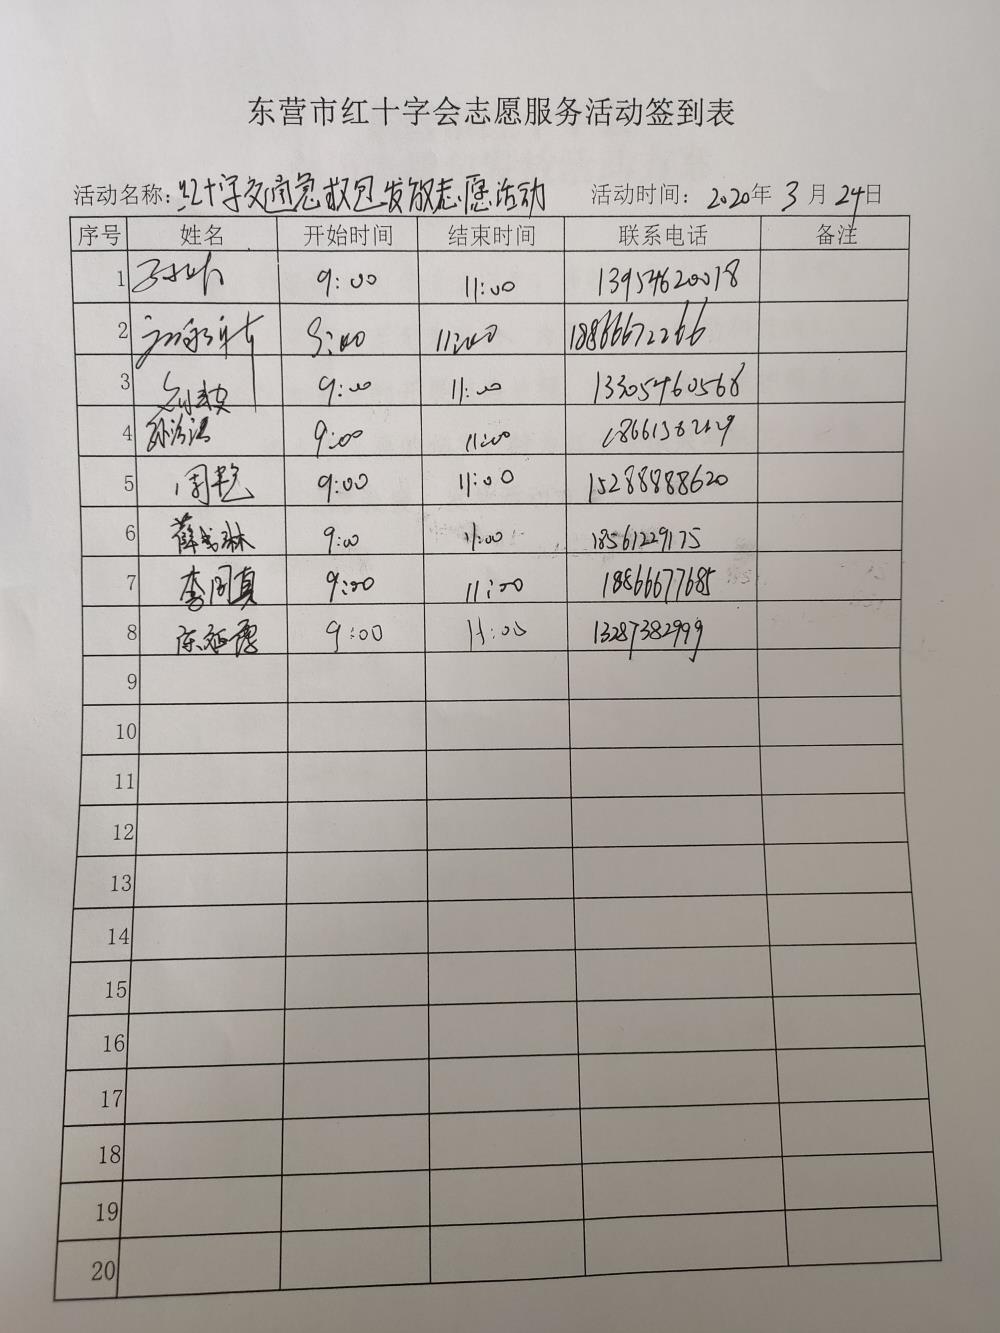 东营市红十字会志愿服务活动签到表
活动名称: 红十字交通急救包发放志愿活动 活动时间: 2020年 3月 24日
序号 姓名 开始时间 结束时间 联系电话 备注
1 9:00 11:00 13954620078
2 9:00 11:00 18866672266
3 9:00 11:00 13305460568
4 9:00 11:00
5 周艳 9:00 11:00 15288888620
6 薛成琳 9:00 11:00 18561229175
7 李同真 9:00 11:00 18866677685
8 9:00 11:00 13287382999
9
10
11
12
13
14
15
16
17
18
19
20